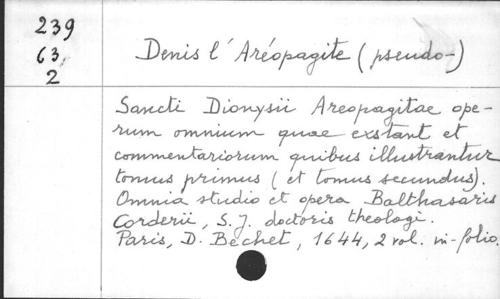 239
63
2
Denis l'Aréopagite (pseudo-)
Sancti Dionysii Areopagitae ope-
rum omnium quae exstant et
commentariorum quibus illustrantur
tomus primus (et tomus secundus).
Omnia studio et opera Balthasaris
Corderii, S.J. doctoris theologi.
Paris, D. Bechet, 1644, 2 vol. in-folio.